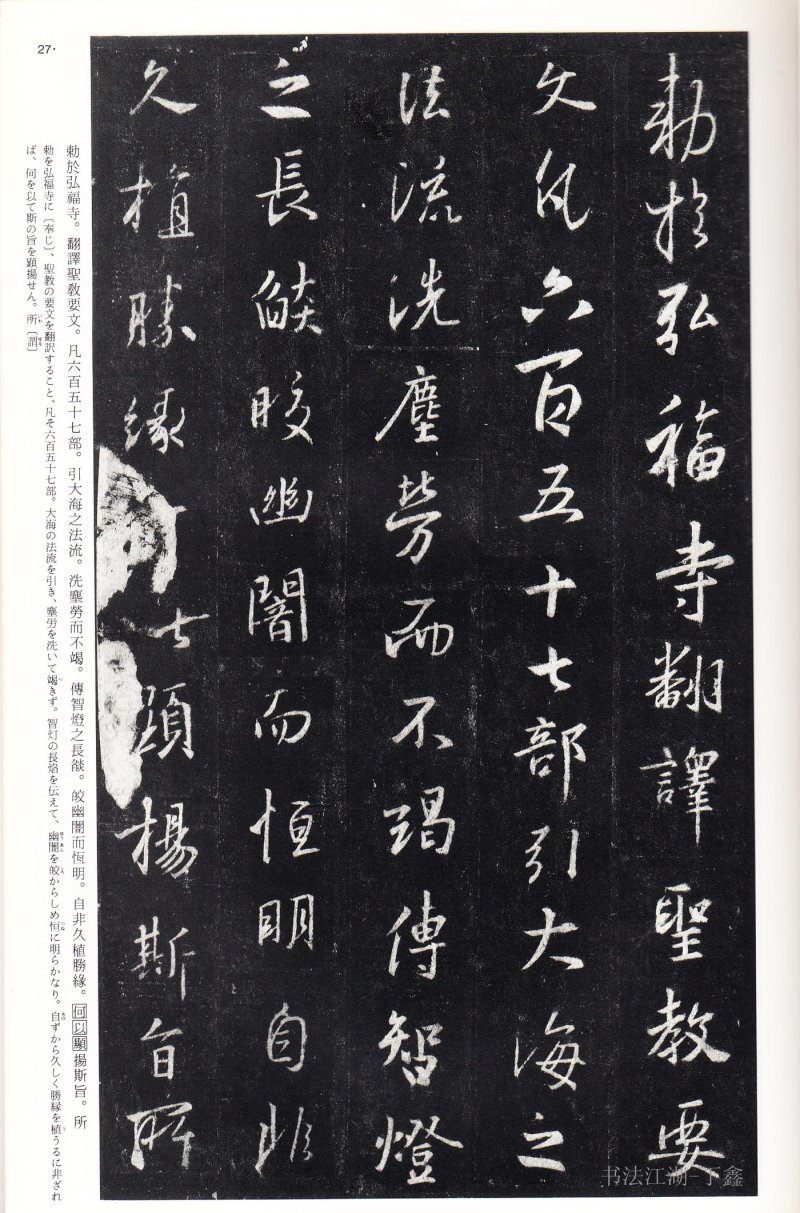 勅於弘福寺翻譯聖教要
文凡六百五十七部引大海之
法流洗塵勞而不竭傳智燈
之長燄皎幽闇而恒明自非
久植勝緣以顯揚斯旨所
勅於弘福寺。翻譯聖教要文。凡六百五十七部。引大海之法流。洗塵勞而不竭。傳智燈之長燄。皎幽闇而恆明。自非久植勝緣。何以顯揚斯旨。所
勅を弘福寺に〔奉じ〕、聖教の要文を翻訳すること、凡そ六百五十七部。大海の法流を引き、塵労を洗いて竭きず。智灯の長焰を伝えて、幽闇を皎からしめ恒に明らかなり。自ずから久しく勝縁を植うるに非ざれ
ば、何を以て斯の旨を顕揚せん。所〔謂〕
27・
书法江湖-丁鑫